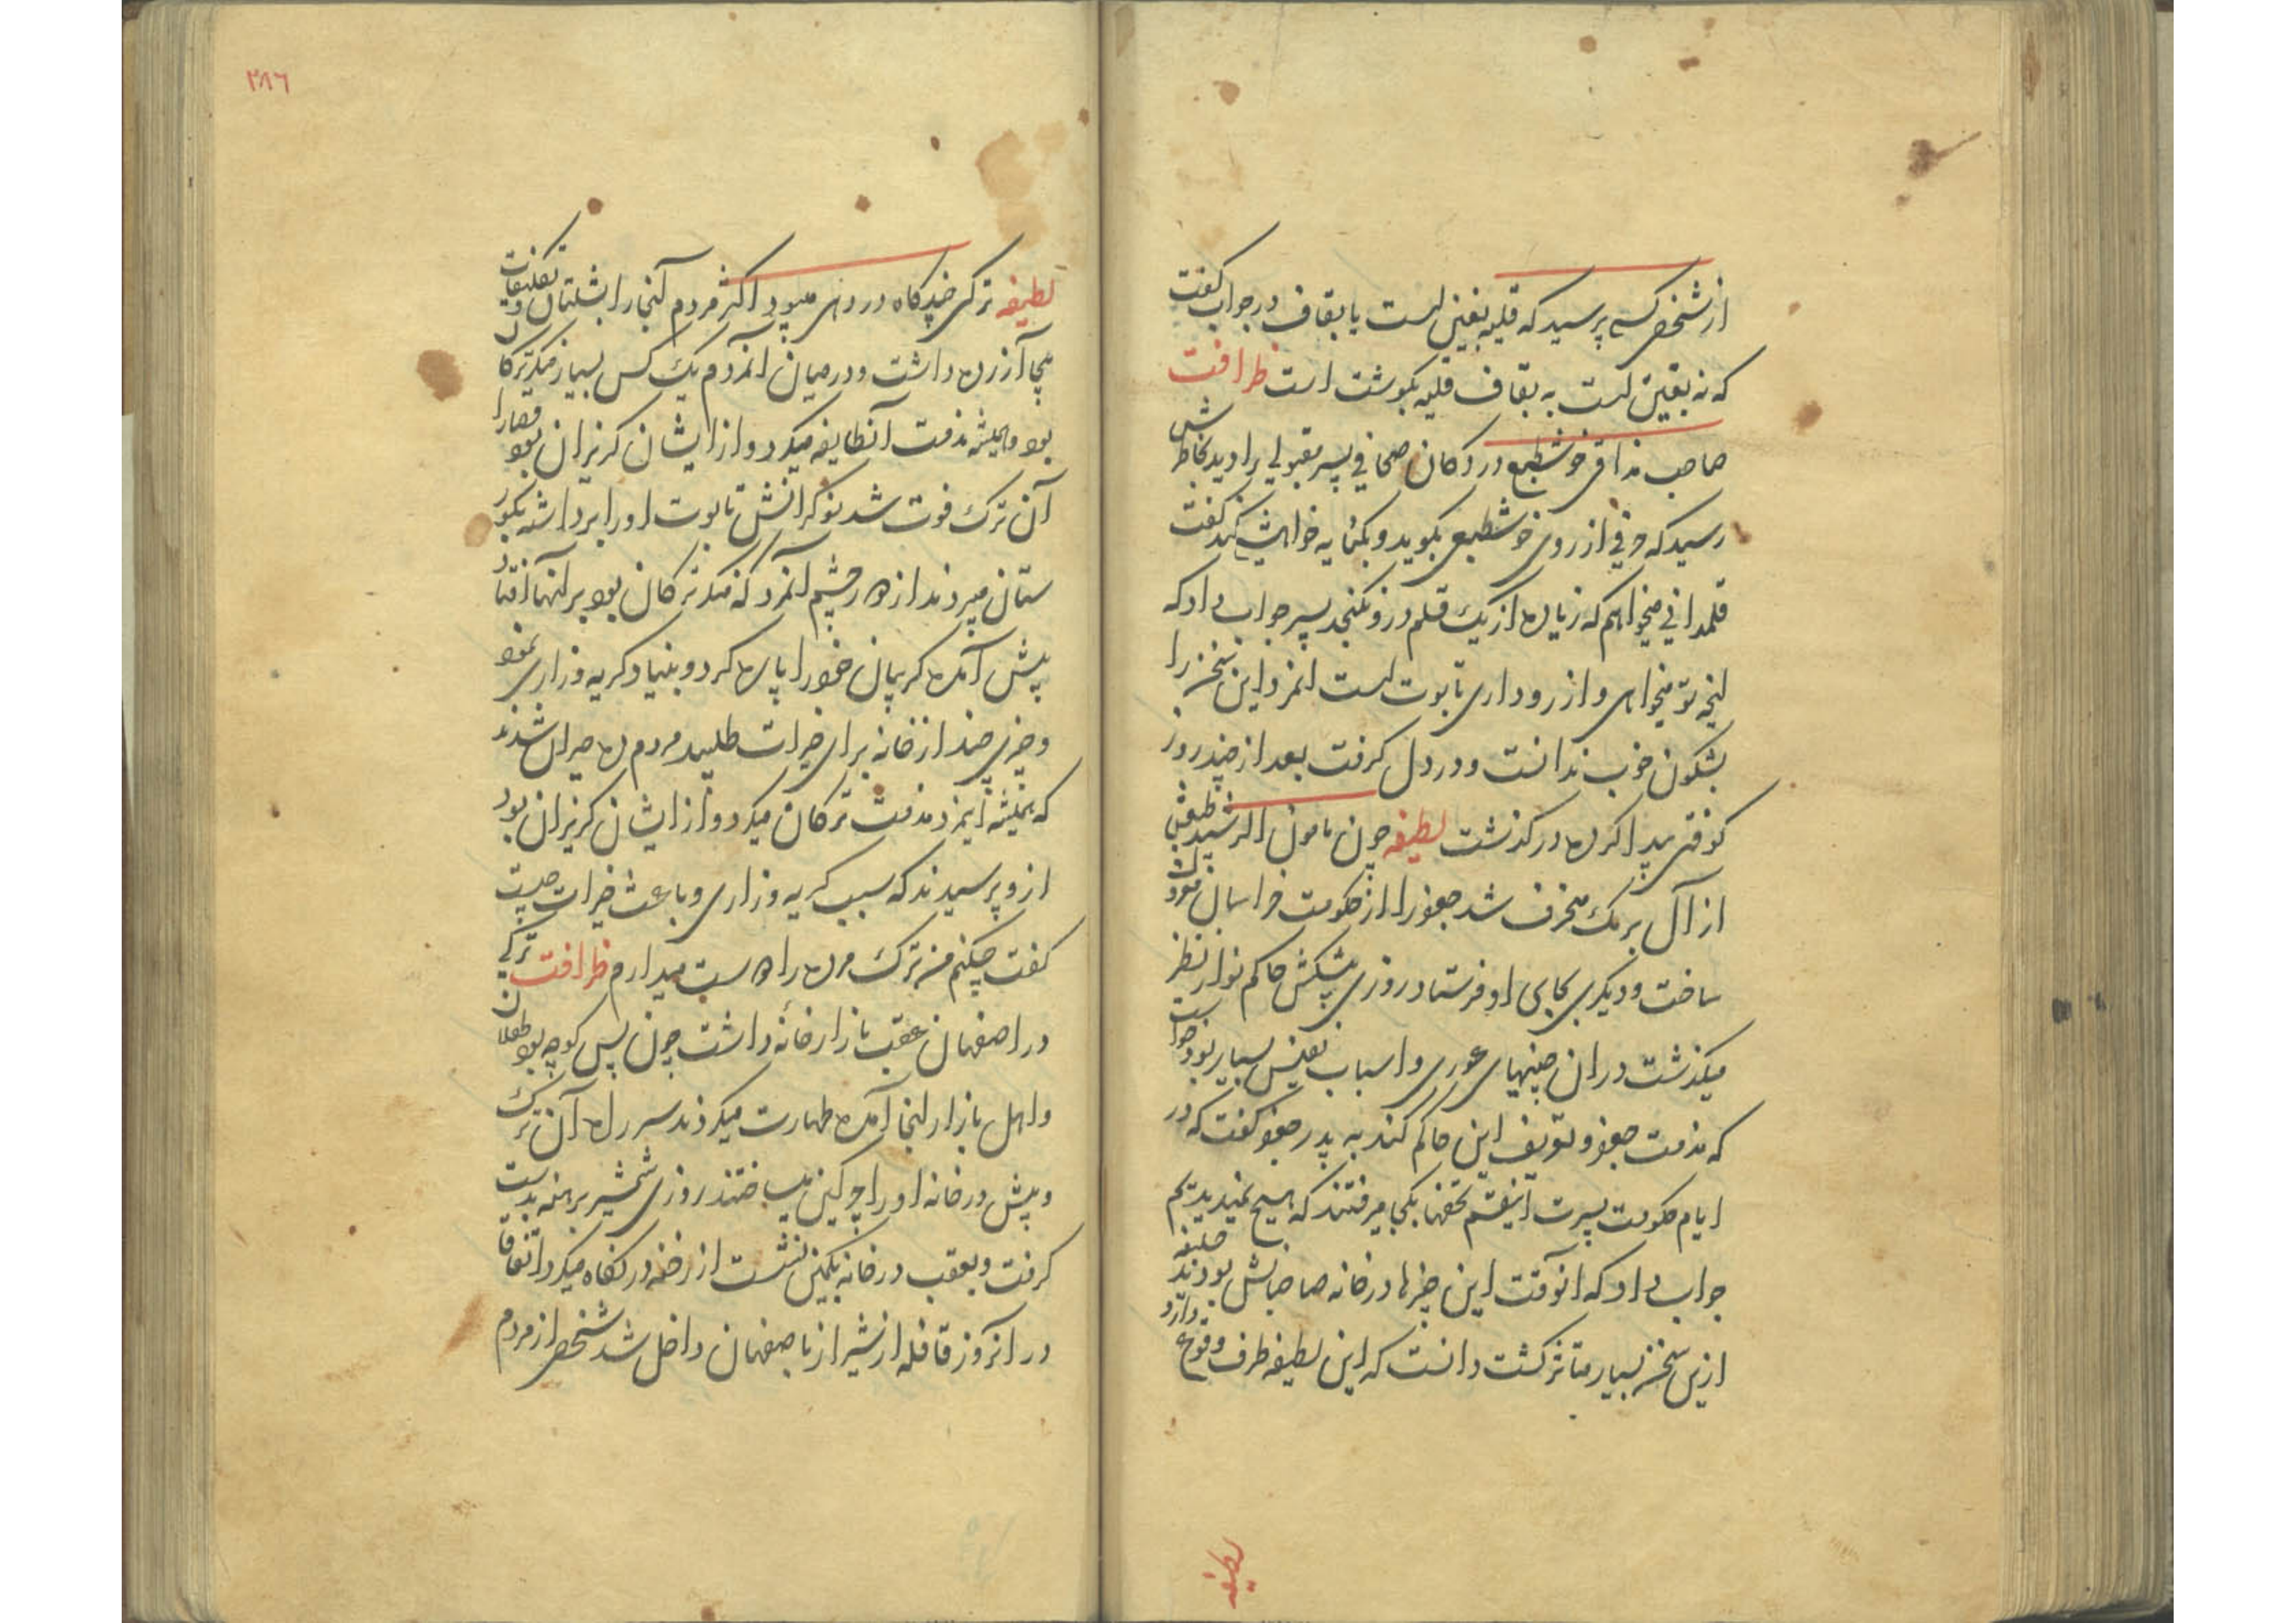 از شخصی کسی پرسید که قلیه بغین است یا بقاف در جواب گفت
که نه بغین است نه بقاف قلیه بگوشت است ظرافت
صاحب مذاقی خوشطبع در دکان صحافی پسر مقبولی را دید بخاطرش
رسید که حرفی از روی خوشطبعی بگوید و بکنایه خواهش کند گفت
قلمدانی میخواهم که زیاده از یک قلم درو نکنجد پسر جواب داد که
اینچه تو میخواهی و ارزو داری تابوت است انمرد این سخن را
بشکون خوب ندانست و در دل گرفت بعد از چند روز
کوفتی پیدا کرده درگذشت لطیفه چون مامون الرشید
از آل برمک منحرف شد جعفر را از حکومت خراسان معزول
ساخت و دیگری بجای او فرستاد روزی پیشکش حاکم نو از نظر
میگذشت در ان چینهای غوری و اسباب نفیس بسیار بود خواست
که مذمت جعفر و تعریف این حاکم کند به پدر جعفر گفت که در
ایام حکومت پسرت اینقسم تحفها بکجا میرفتند که هیچ نمیدیدیم
جواب داد که انوقت این چیزها در خانه صاحبانش بودند خلیفه
ازین سخن بسیار متاثر گشت دانست که این لطیفه طرف وقوع دارد
لطیفه
۲۸۶
لطیفه ترکی چند گاه در دهی میبود اکثر مردم آنجا را بشلتاق و تکلیفات
بیجا آزرده داشت و در میان انمردم یک کس بسیار منکر ترکان
بود و همیشه مذمت آنطایفه میکرد و از ایشان گریزان بود قضارا
آن ترک فوت شد نوکرانش تابوت او را برداشته بگور
ستان میبردند از دور چشم انمرد که منکر ترکان بود بر انها افتاد
پیش آمده گریبان خود را پاره کرد و بنیاد گریه و زاری نمود
و چیزی چند از خانه برای خیرات طلبید مردم ده حیران شدند
که همیشه اینمرد مذمت ترکان میکرد و از ایشان گریزان بود
ازو پرسیدند که سبب گریه و زاری و باعث خیرات چیست
گفت چکنم من ترک مرده را دوست میدارم ظرافت ترکی
در اصفهان عقب بازار خانه داشت چون پس کوچه بود طفلان
و اهل بازار انجا آمده طهارت میکردند سر راه آن ترک
و پیش در خانه او را چرکین میساختند روزی شمشیر برهنه بدست
گرفت و بعقب در خانه بکمین نشست از رخنه در نگاه میکرد اتفاقا
در انروز قافله از شیراز باصفهان داخل شد شخصی از مردم